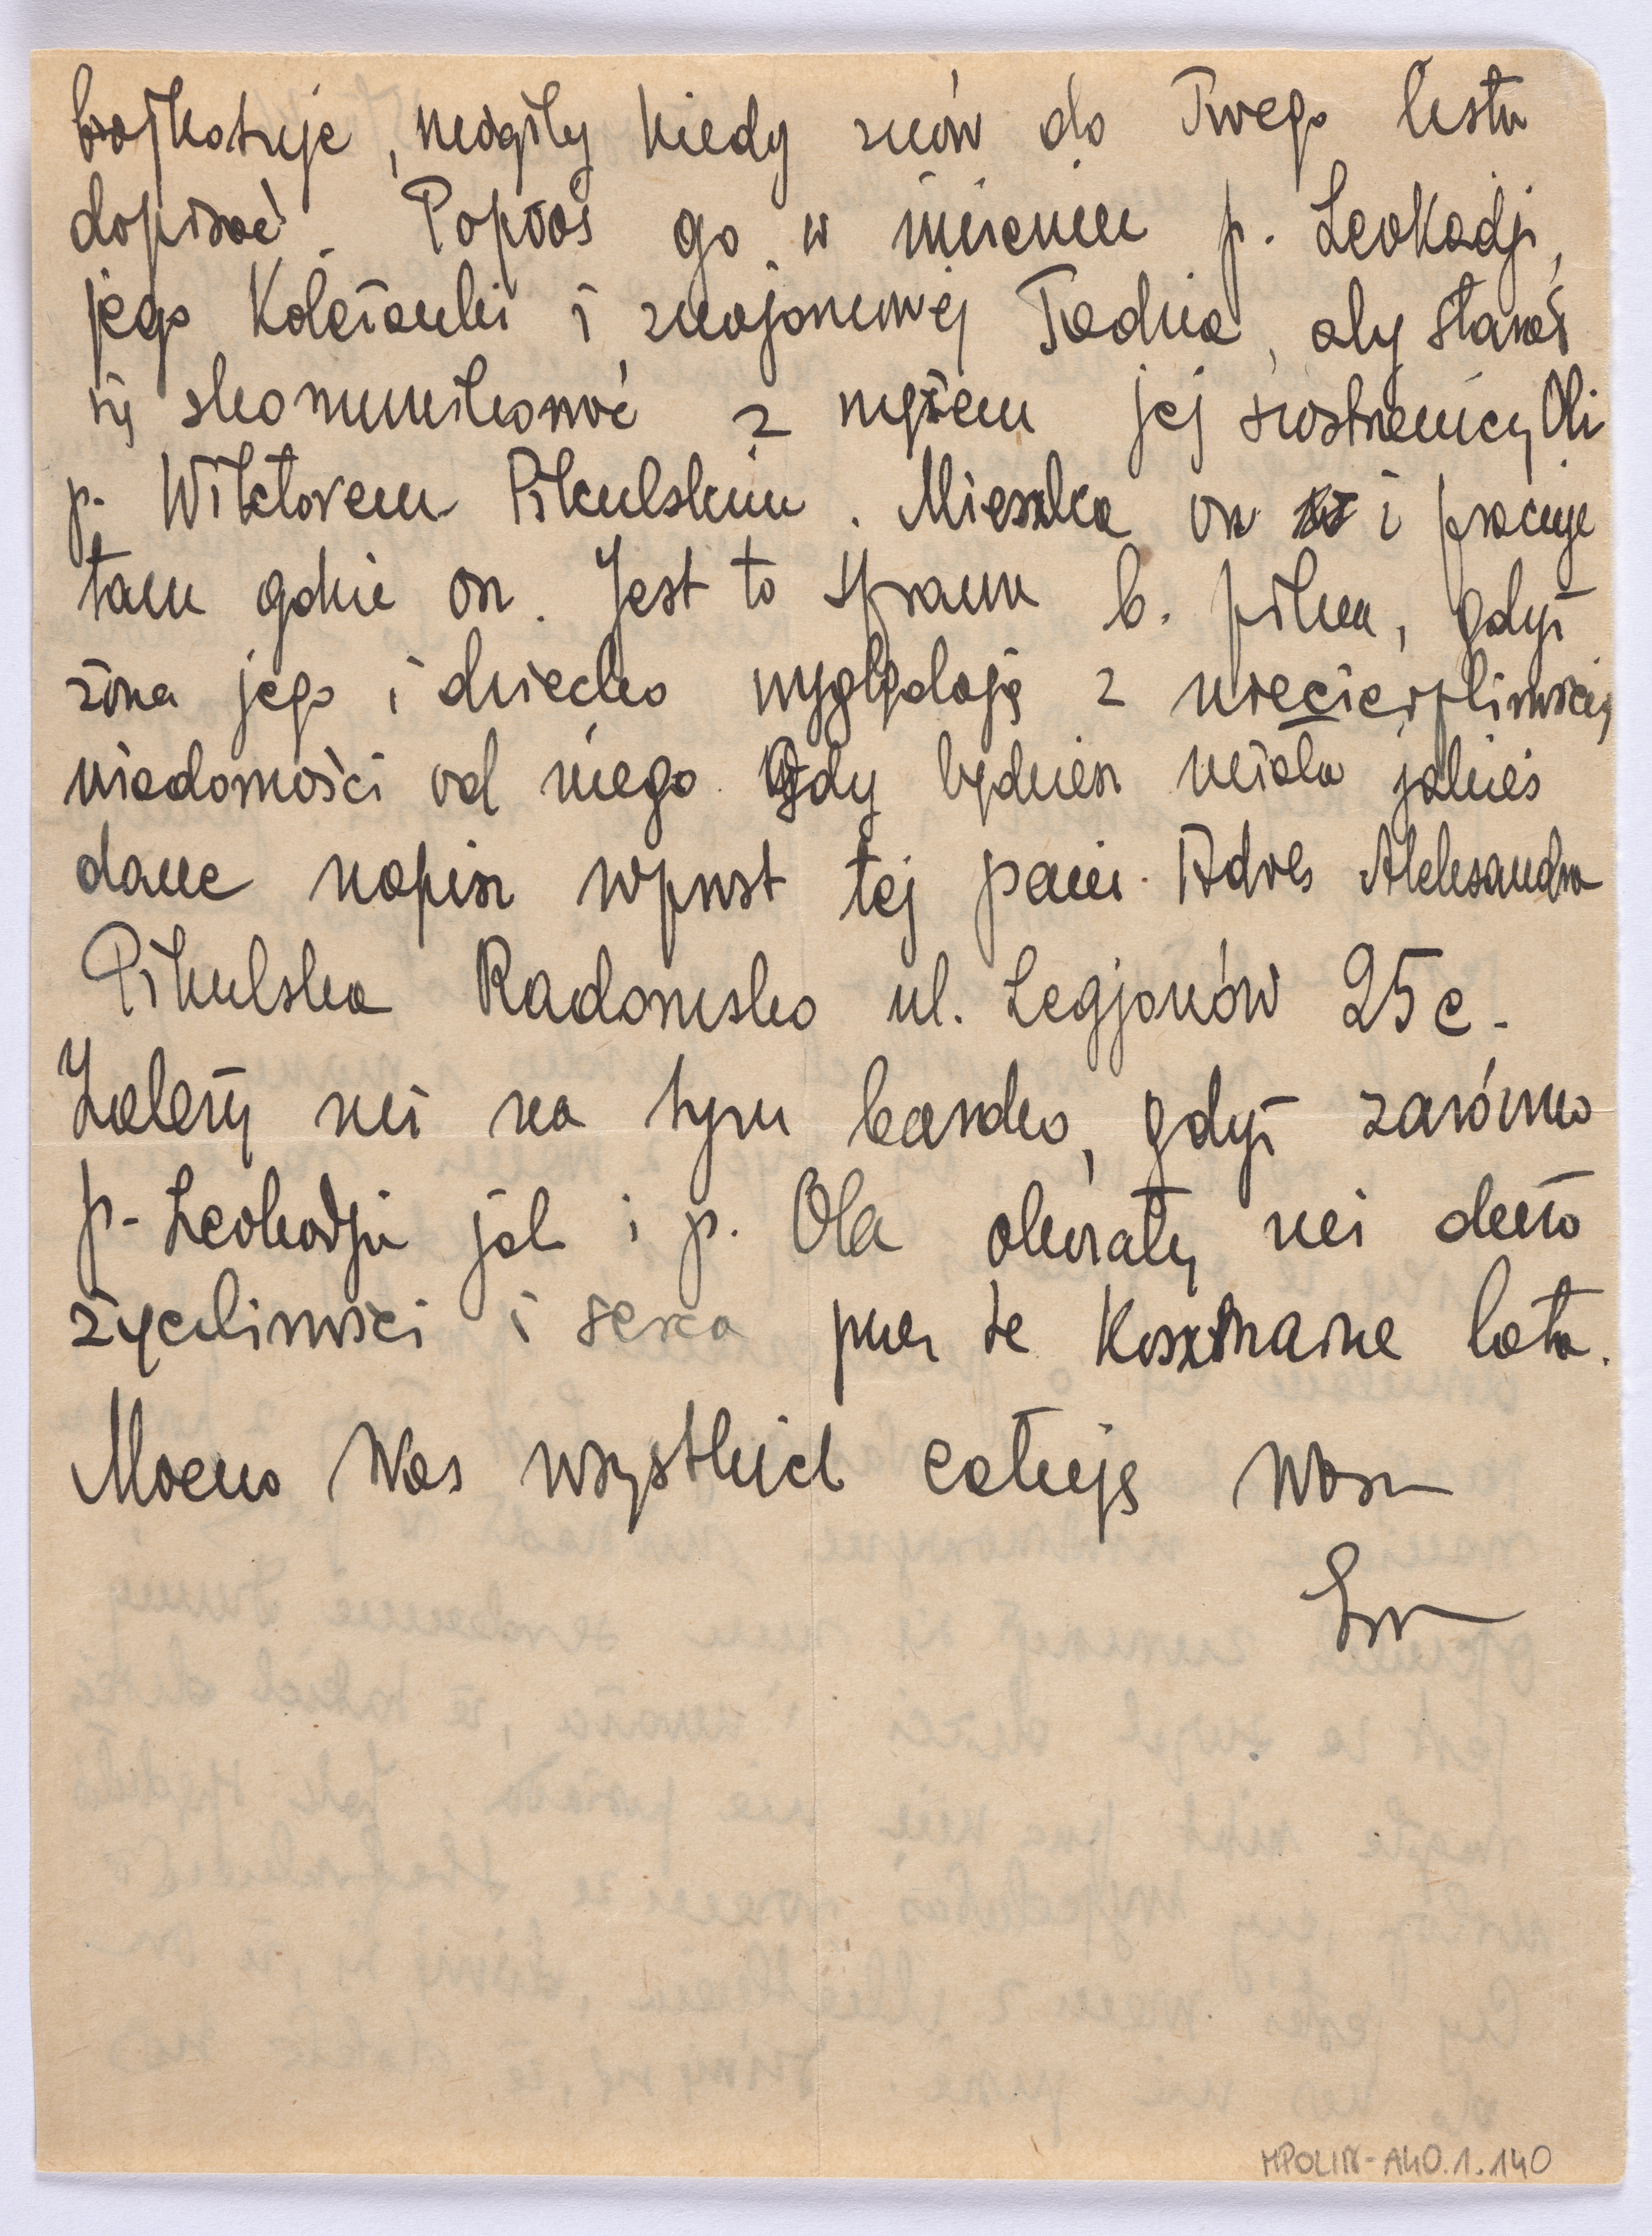 bojkotuje, mógłby kiedy znów do Twego listu
dopisać. Poproś go w imieniu p. Leokadji,
jego koleżanki i znajomej Tadzia, aby starał
się skomunikować z mężem jej siostrzenicy Oli
p. Wiktorem Pikulskim. Mieszka on i pracuje
tam gdzie on. Jest to sprawa b. pilna, gdyż
żona jego i dziecko wyglądają z niecierpliwością
wiadomości od niego. Gdy będziesz miała jakieś
dane napisz wprost tej pani. Adres Aleksandra
Pikulska Radomsko ul. Legjonów 25 c.
Zależy mi na tym bardzo, gdyż zarówno
p. Leokadja jak i p. Ola okazały mi dużo
życzliwości i serca przez te koszmarne lata.
Mocno Was wszystkich całuję Wasza
MPOLIN-A40.1.140